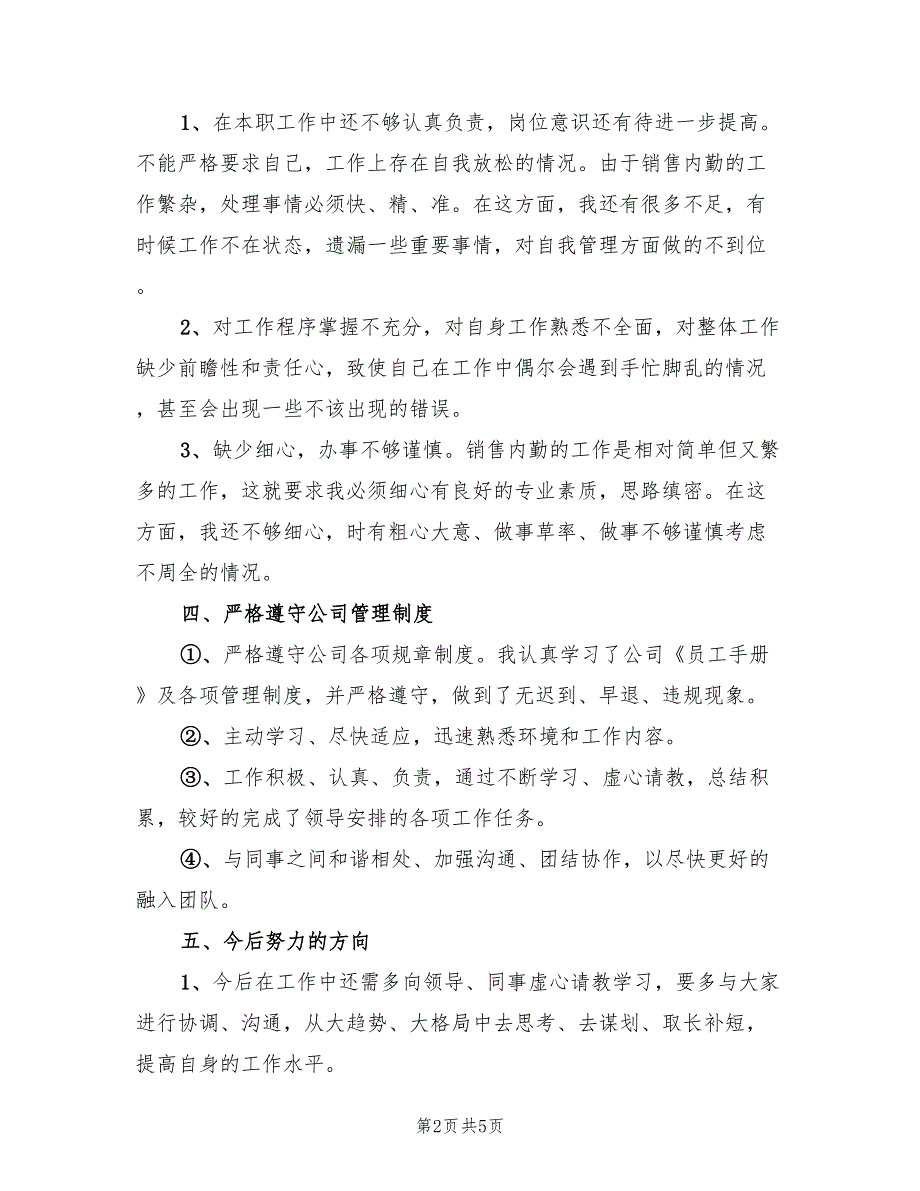 1、在本职工作中还不够认真负责，岗位意识还有待进一步提高。
不能严格要求自己，工作上存在自我放松的情况。由于销售内勤的工
作繁杂，处理事情必须快、精、准。在这方面，我还有很多不足，有
时候工作不在状态，遗漏一些重要事情，对自我管理方面做的不到位
。
2、对工作程序掌握不充分，对自身工作熟悉不全面，对整体工作
缺少前瞻性和责任心，致使自己在工作中偶尔会遇到手忙脚乱的情况
，甚至会出现一些不该出现的错误。
3、缺少细心，办事不够谨慎。销售内勤的工作是相对简单但又繁
多的工作，这就要求我必须细心有良好的专业素质，思路缜密。在这
方面，我还不够细心，时有粗心大意、做事草率、做事不够谨慎考虑
不周全的情况。
四、严格遵守公司管理制度
①、严格遵守公司各项规章制度。我认真学习了公司《员工手册
》及各项管理制度，并严格遵守，做到了无迟到、早退、违规现象。
②、主动学习、尽快适应，迅速熟悉环境和工作内容。
③、工作积极、认真、负责，通过不断学习、虚心请教，总结积
累，较好的完成了领导安排的各项工作任务。
④、与同事之间和谐相处、加强沟通、团结协作，以尽快更好的
融入团队。
五、今后努力的方向
1、今后在工作中还需多向领导、同事虚心请教学习，要多与大家
进行协调、沟通，从大趋势、大格局中去思考、去谋划、取长补短，
提高自身的工作水平。
第2页共5页